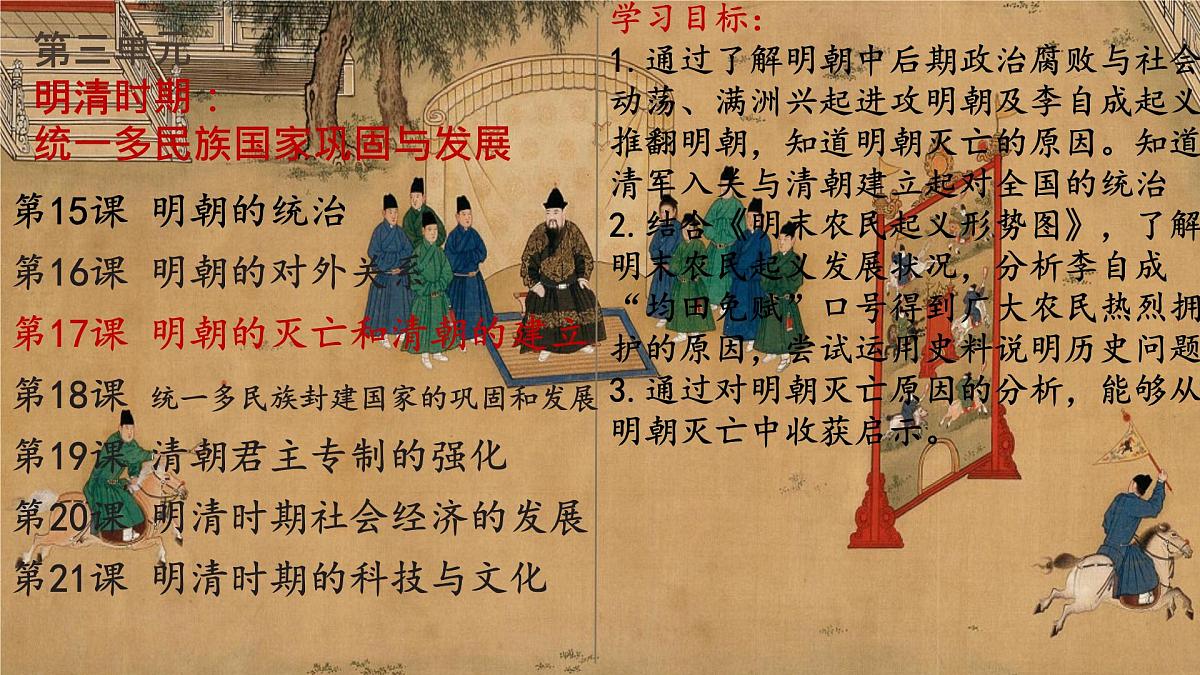 第三单元
明清时期：
统一多民族国家巩固与发展
第15课 明朝的统治
第16课 明朝的对外关系
第17课 明朝的灭亡和清朝的建立
第18课 统一多民族封建国家的巩固和发展
第19课 清朝君主专制的强化
第20课 明清时期社会经济的发展
第21课 明清时期的科技与文化
学习目标：
1.通过了解明朝中后期政治腐败与社会
动荡、满洲兴起进攻明朝及李自成起义
推翻明朝，知道明朝灭亡的原因。知道
清军入关与清朝建立起对全国的统治
2.结合《明末农民起义形势图》，了解
明末农民起义发展状况，分析李自成
“均田免赋”口号得到广大农民热烈拥
护的原因，尝试运用史料说明历史问题
3.通过对明朝灭亡原因的分析，能够从
明朝灭亡中收获启示。